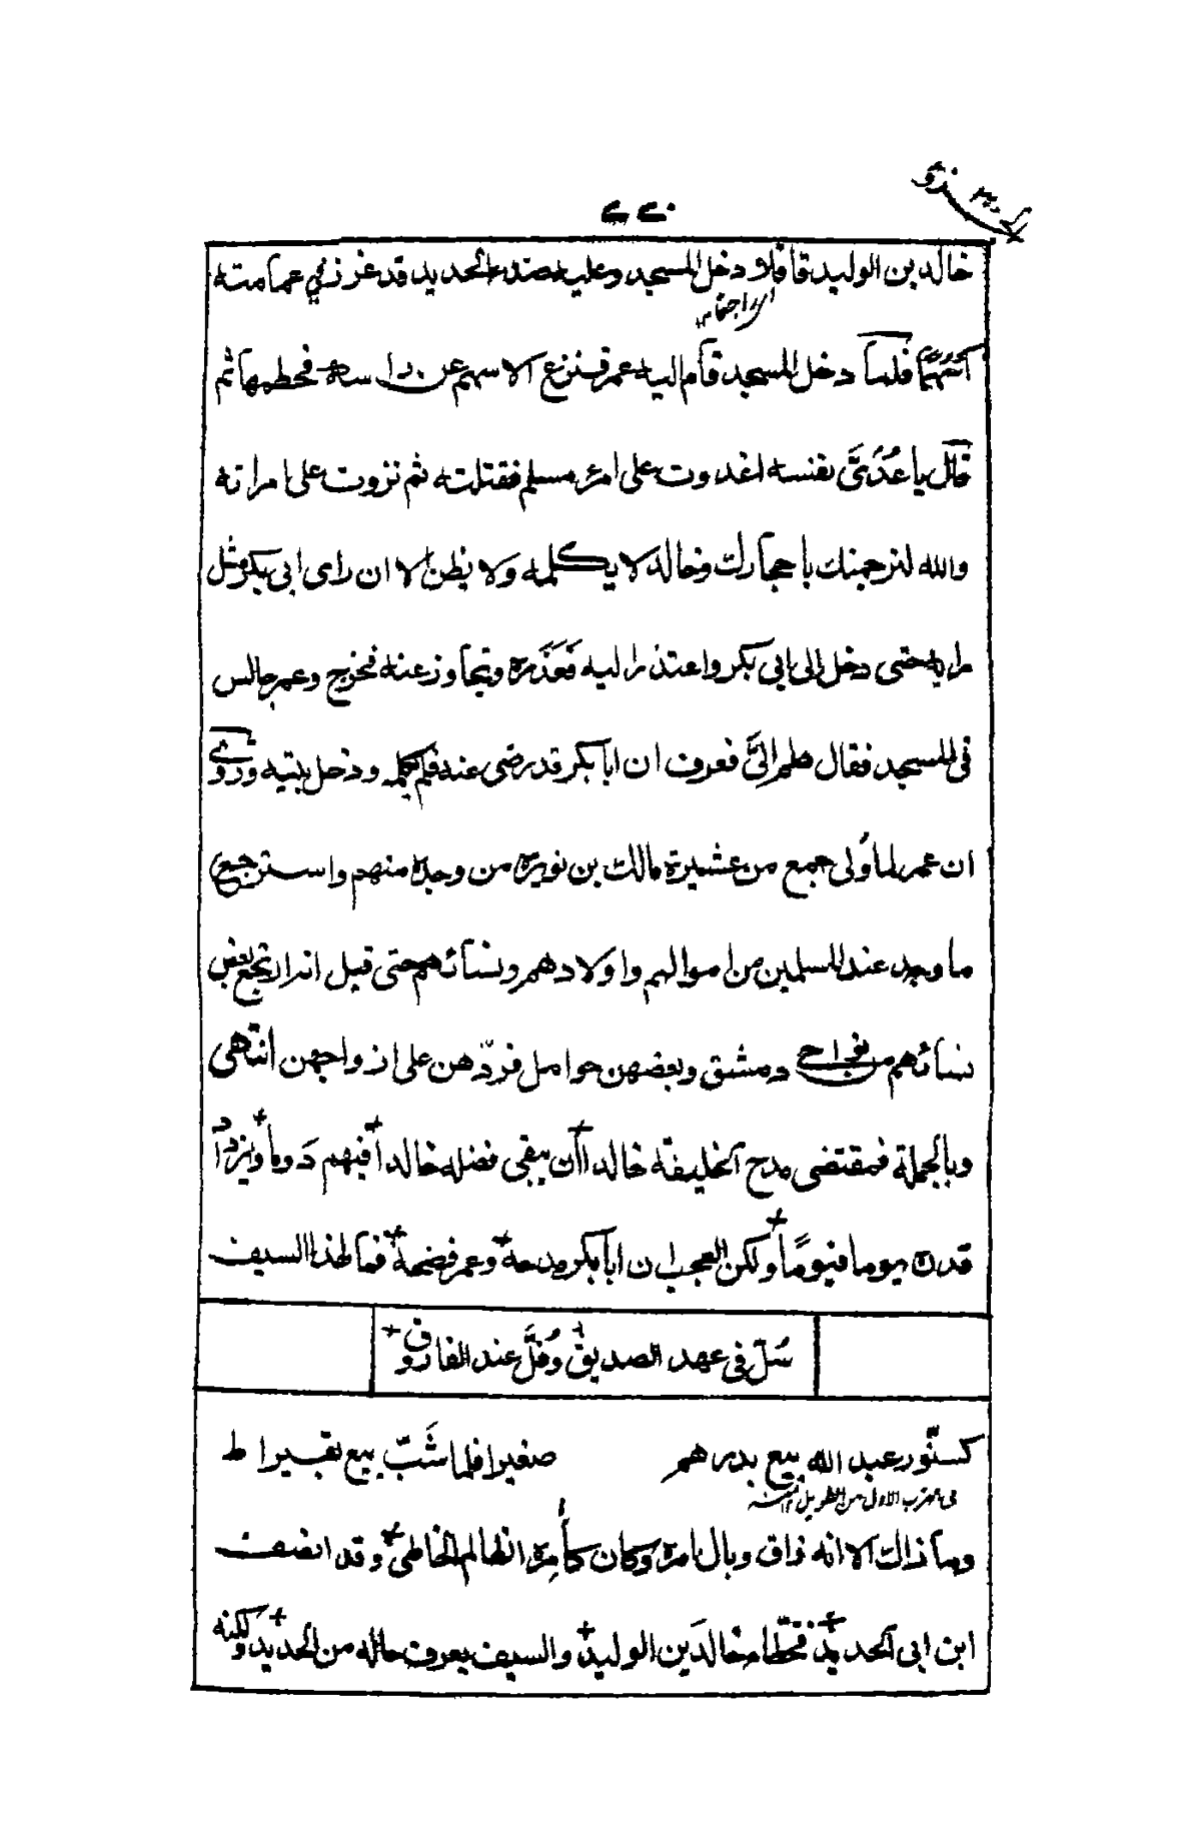 خالد بن الوليد قافلا دخل المسجد وعليه صدء الحديد قد غرز في عمامته
اسهما فلما دخل المسجد قام اليه عمر فنزع الاسهم عن راسه فحطمها ثم
قال يا عُدَىَّ نفسه اغدوت على امرئ مسلم فقتلته ثم نزوت على امراته
والله لنرجمنك باحجارك وخالد لا يكلمه ولا يظن الا ان راى ابى بكر مثل
رايه حتى دخل الى ابى بكر واعتذر اليه فَعَذَره وتجاوز عنه فخرج وعمر جالس
فى المسجد فقال هلم الىَّ فعرف ان ابا بكر قد رضى عنه فلم يكلمه ودخل بيته وروى
ان عمر لما وُلى جمع من عشيرة مالك بن نويره من وجده منهم واسترجع
ما وجد عند المسلمين من اموالهم واولادهم ونسائهم حتى قيل انه ارتجع بعض
نسائهم من نواحى دمشق وبعضهن حوامل فردّهن على ازواجهن انتهى
وبالجملة فمقتضى مدح الخليفة خالدا أن يبقى فضله خالدا فيهم دوما ويزداد
قدره يوما فيومًا ولكن العجب ان ابا بكر مدحه وعمر فضحه فما لهذا السيف
سُلّ فى عهد الصديق وفُلَّ عند الفاروق
كسنّور عبد الله بيع بدرهم صغيرا فلما شَبّ بيع بقيراط
وما ذالك الا انه ذاق وبال امره وكان كأمِره الظالم الخاطى وقد انصف
ابن ابى الحديد فخطّاء خالد بن الوليد والسيف يعرف حاله من الحديد ولكنه